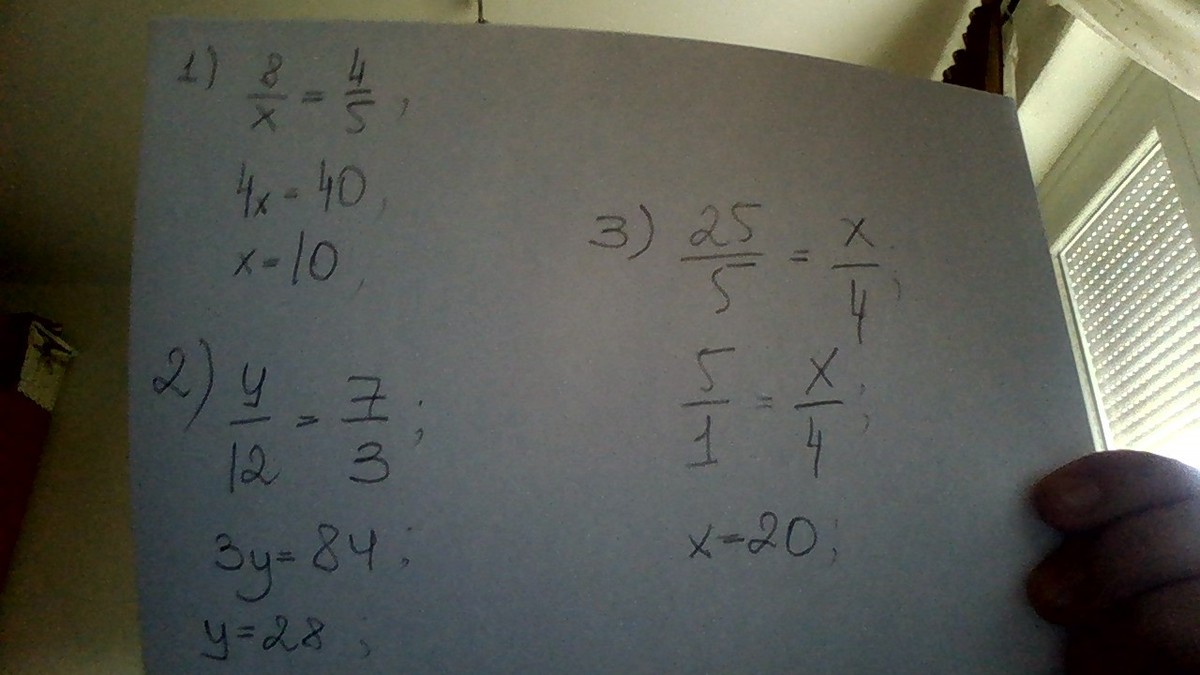 1) 8/x = 4/5;
4x = 40,
x = 10,
2) y/12 = 7/3;
3y = 84;
y = 28;
3) 25/5 = x/4;
5/1 = x/4;
x = 20;